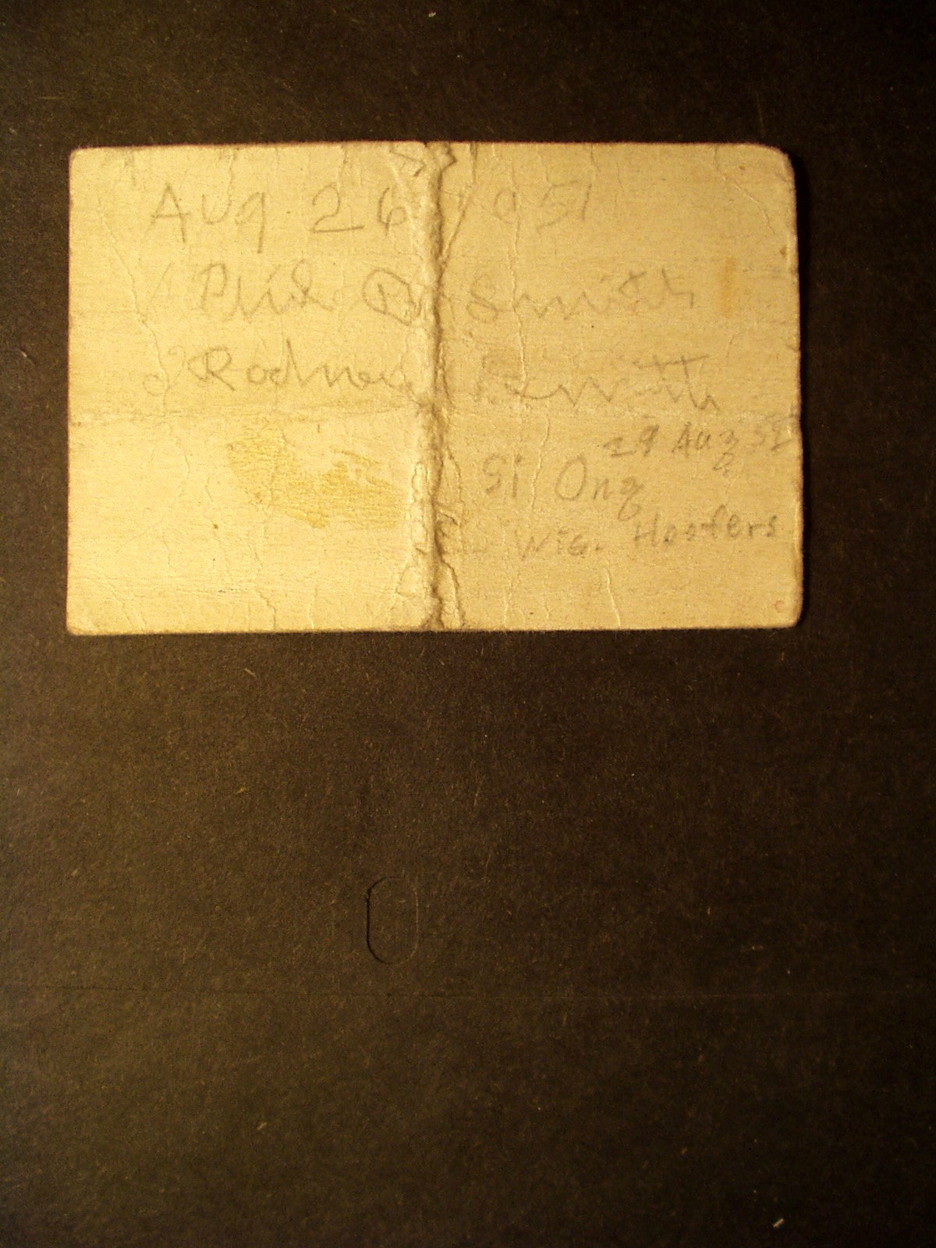 Aug 26 1951
Phil B. Smith
Rodney Smith
29 Aug 51
Si Ong
Wis. Hoofers